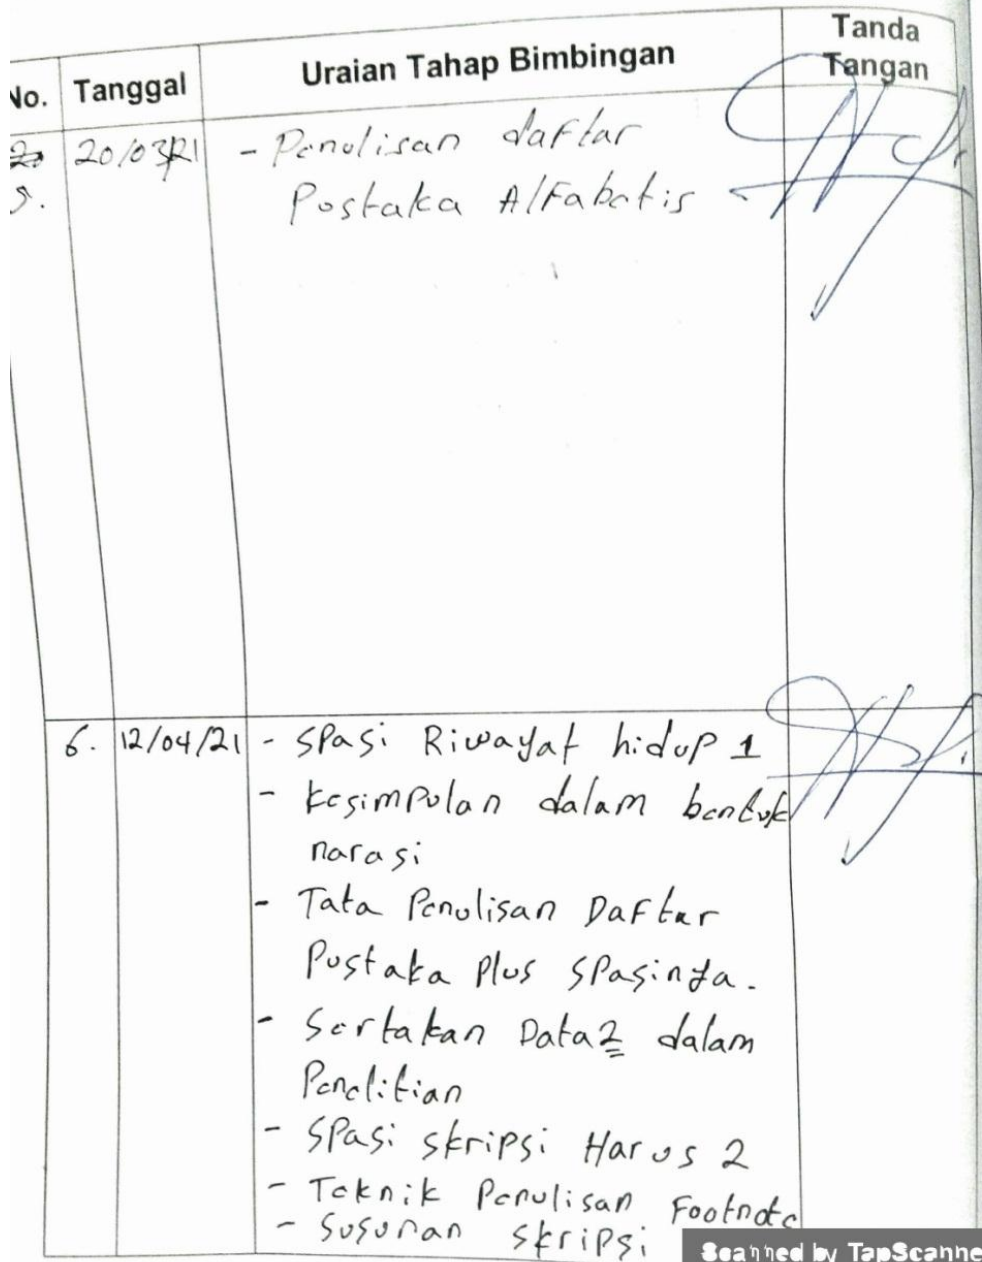 No. Tanggal Uraian Tahap Bimbingan Tanda
Tangan
5. 20/03/21 - Penulisan daftar
Pustaka Alfabetis
6. 12/04/21 - Spasi Riwayat hidup 1
- Kesimpulan dalam bentuk
narasi
- Tata Penulisan Daftar
Pustaka Plus Spasinya.
- Sertakan Data2 dalam
Penelitian
- Spasi skripsi Harus 2
- Teknik Penulisan Footnote
- Susunan skripsi
Scanned by TapScanne